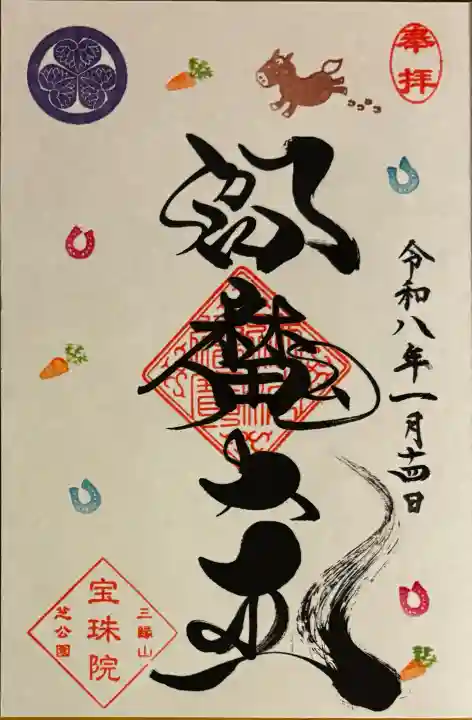 奉拝
令和八年一月十四日
閻魔大王
三縁山
宝珠院
芝公園